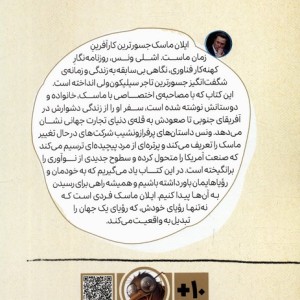 ایلان ماسک جسورترین کارآفرین
زمان ماست. اشلی ونس، روزنامه‌نگار
کهنه‌کار فناوری، نگاهی بی‌سابقه به زندگی و زمانه‌ی
شگفت‌انگیز جسورترین تاجر سیلیکون‌ولی انداخته است.
این کتاب که با مصاحبه‌ی اختصاصی با ماسک، خانواده و
دوستانش نوشته شده است، سفر او را از زندگی دشوارش در
آفریقای جنوبی تا صعودش به قله‌ی دنیای تجارت جهانی نشان
می‌دهد. ونس داستان‌های پرفرازونشیب شرکت‌های در حال تغییر
ماسک را تعریف می‌کند و پرتره‌ای از مرد پیچیده‌ای ترسیم می‌کند
که صنعت آمریکا را متحول کرده و سطوح جدیدی از نوآوری را
برانگیخته است. در این کتاب یاد می‌گیریم که به خودمان و
رؤیاهایمان باور داشته باشیم و همیشه راهی برای رسیدن
به آن‌ها پیدا کنیم. ایلان ماسک فردی است که
نه‌تنها رؤیای خودش، که رؤیای یک جهان را
تبدیل به واقعیت می‌کند.
+۱۰